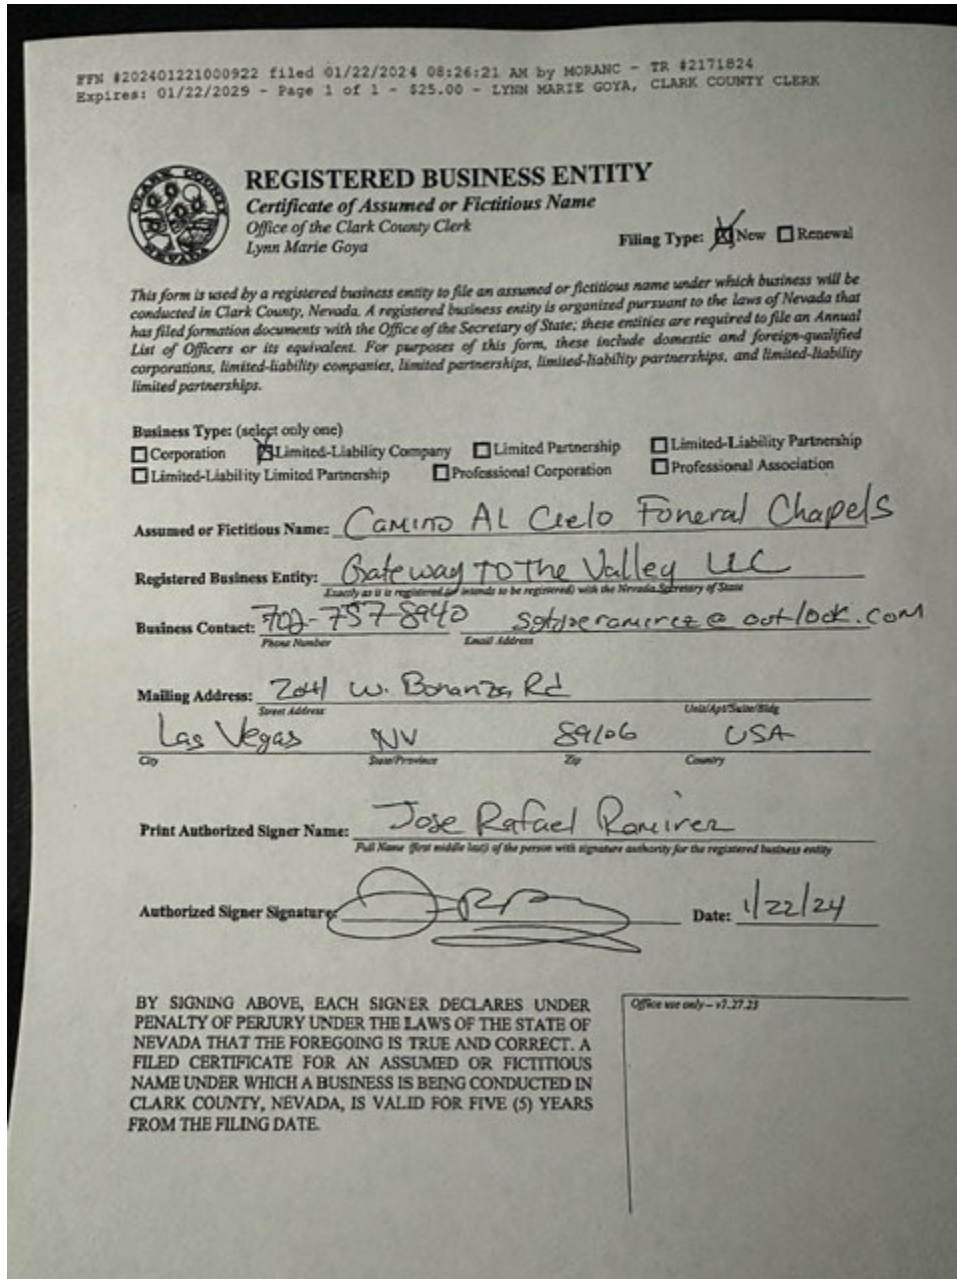 FFN #202401221000922 filed 01/22/2024 08:26:21 AM by MORANC - TR #2171824
Expires: 01/22/2029 - Page 1 of 1 - $25.00 - LYNN MARIE GOYA, CLARK COUNTY CLERK
CLARK COUNTY
NEVADA
REGISTERED BUSINESS ENTITY
Certificate of Assumed or Fictitious Name
Office of the Clark County Clerk
Lynn Marie Goya
Filing Type: New Renewal
This form is used by a registered business entity to file an assumed or fictitious name under which business will be
conducted in Clark County, Nevada. A registered business entity is organized pursuant to the laws of Nevada that
has filed formation documents with the Office of the Secretary of State; these entities are required to file an Annual
List of Officers or its equivalent. For purposes of this form, these include domestic and foreign-qualified
corporations, limited-liability companies, limited partnerships, limited-liability partnerships, and limited-liability
limited partnerships.
Business Type: (select only one)
Corporation Limited-Liability Company Limited Partnership Limited-Liability Partnership
Limited-Liability Limited Partnership Professional Corporation Professional Association
Assumed or Fictitious Name: Camino Al Cielo Foneral Chapels
Registered Business Entity: Gateway To The Valley LLC
Exactly as it is registered (or intends to be registered) with the Nevada Secretary of State
Business Contact: 702-757-8940 @outlook.com
Phone Number Email Address
Mailing Address: 2041 W. Bonanza Rd
Street Address Unit/Apt/Suite/Bldg
Las Vegas NV 89106 USA
City State/Province Zip Country
Print Authorized Signer Name: Jose Rafael Ramirez
Full Name (first middle last) of the person with signature authority for the registered business entity
Authorized Signer Signature: Date: 1/22/24
BY SIGNING ABOVE, EACH SIGNER DECLARES UNDER
PENALTY OF PERJURY UNDER THE LAWS OF THE STATE OF
NEVADA THAT THE FOREGOING IS TRUE AND CORRECT. A
FILED CERTIFICATE FOR AN ASSUMED OR FICTITIOUS
NAME UNDER WHICH A BUSINESS IS BEING CONDUCTED IN
CLARK COUNTY, NEVADA, IS VALID FOR FIVE (5) YEARS
FROM THE FILING DATE.
Office use only – v7.27.23